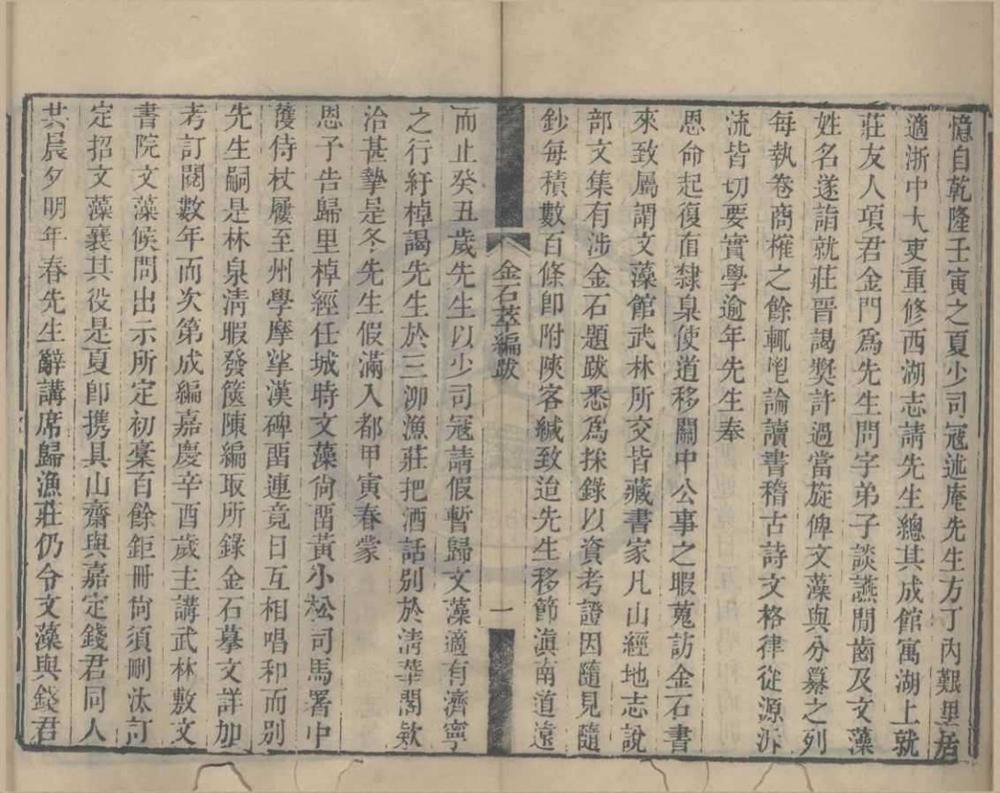 憶自乾隆壬寅之夏少司寇述庵先生方丁內艱里居
適浙中大吏重修西湖志請先生總其成館寓湖上就
莊友人項君金門爲先生問字弟子談讌閒齒及文藻
姓名遂詣就莊晉謁奬許過當旋俾文藻與分纂之列
每執卷商榷之餘輒諄論讀書稽古詩文格律從源泝
流皆切要實學逾年先生奉
恩命起復直隸臬使道移關中公事之暇蒐訪金石書
來致屬謂文藻館武林所交皆藏書家凡山經地志說
部文集有涉金石題跋悉爲採錄以資考證因隨見隨
鈔每積數百條卽附陝客緘致迨先生移節滇南道遠
金石萃編跋
一
而止癸丑歲先生以少司寇請假暫歸文藻適有濟寧
之行紆棹謁先生於三泖漁莊把酒話別於淸華閣欵
洽甚摯是冬先生假滿入都甲寅春蒙
恩予告歸里棹經任城時文藻尙畱黃小松司馬署中
獲侍杖屨至州學摩挲漢碑畱連竟日互相唱和而別
先生嗣是林泉淸暇發篋陳編取所錄金石摹文詳加
考訂閱數年而次第成編嘉慶辛酉歲主講武林敷文
書院文藻候問出示所定初稾百餘鉅冊尙須刪汰訂
定招文藻襄其役是夏卽攜具山齋與嘉定錢君同人
共晨夕明年春先生辭講席歸漁莊仍令文藻與錢君